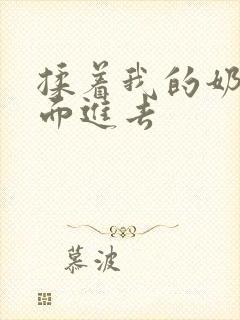 揉着我的奶
而进去
慕波